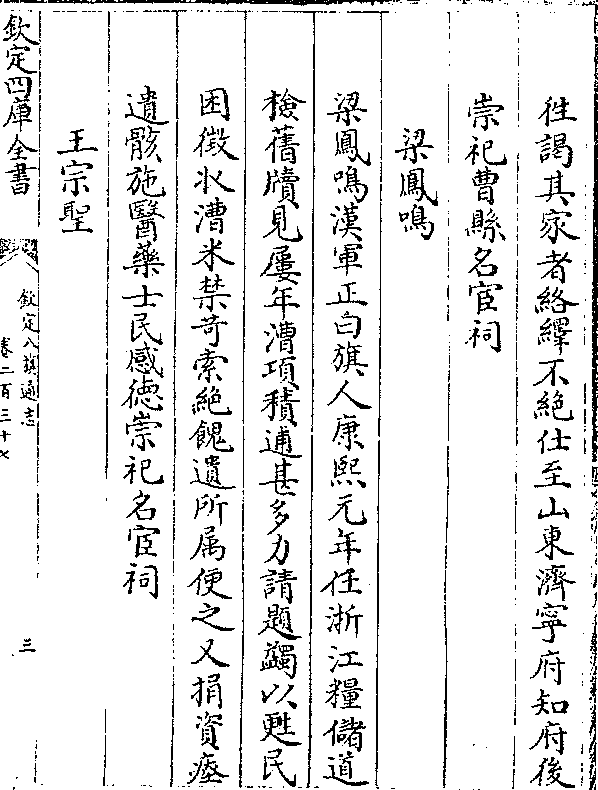 徃謁其家者絡繹不絕仕至山東濟寧府知府後
崇祀曹縣名宦祠
梁鳳鳴
梁鳳鳴漢軍正白旗人康熙元年任浙江糧儲道
檢舊牘見屢年漕項積逋甚多力請題蠲以甦民
困徵收漕米禁苛索絕餽遺所属便之又捐資瘞
遺骸施醫藥士民感德崇祀名宦祠
王宗聖
欽定四庫全書
欽定八旗通志
卷二百三十七
三